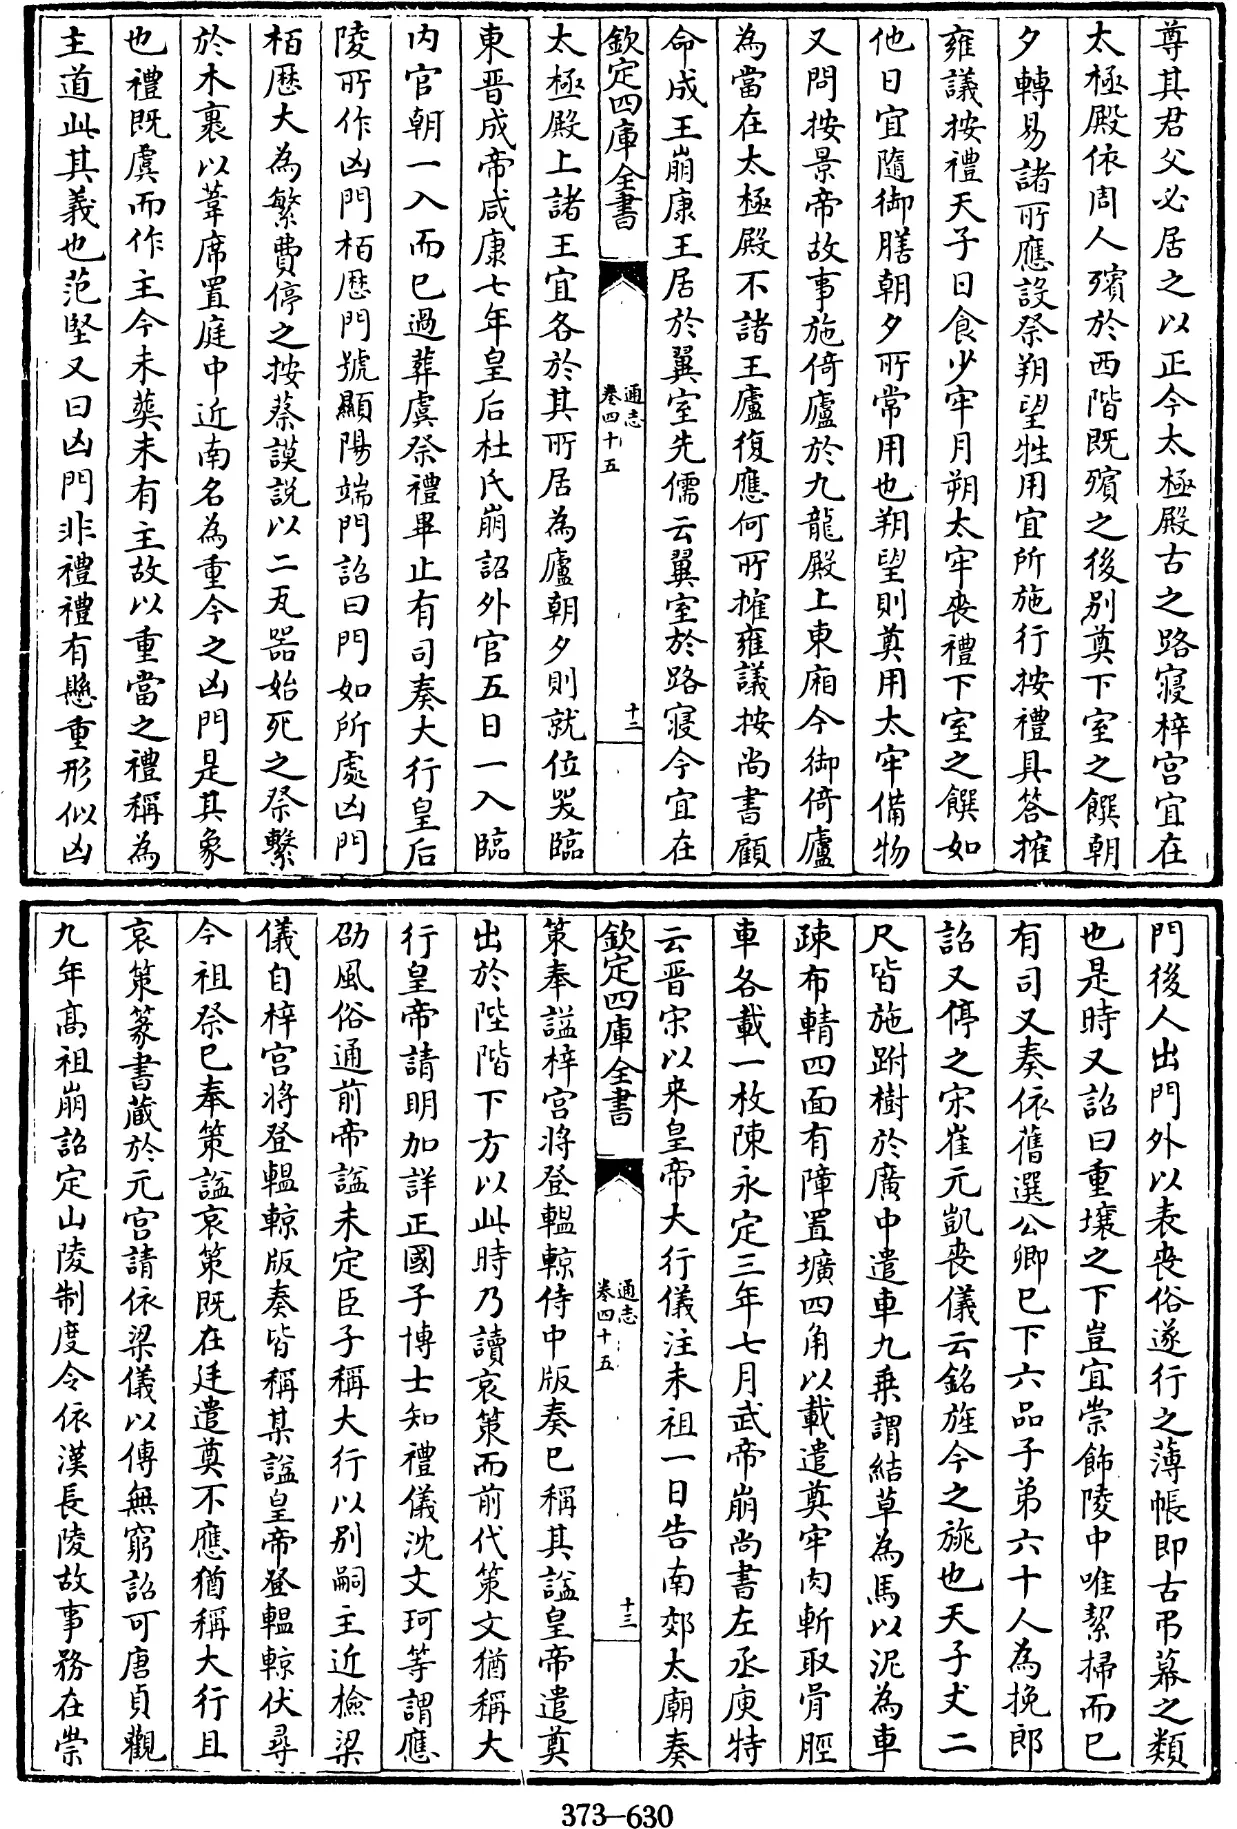 尊其君父必居之以正今太極殿古之路寢梓宫宜在
太極殿依周人殯於西階既殯之後别奠下室之饌朝
夕轉易諸所應設祭朔望牲用宜所施行按禮具答摧
雍議按禮天子日食少牢月朔太牢喪禮下室之饌如
他日宜隨御膳朝夕所常用也朔望則奠用太牢備物
又問按景帝故事施倚廬於九龍殿上東廂今御倚廬
為當在太極殿不諸王廬復應何所摧雍議按尚書顧
命成王崩康王居於翼室先儒云翼室於路寢今宜在
欽定四庫全書
通志
卷四十五
十二
太極殿上諸王宜各於其所居為廬朝夕則就位哭臨
東晋成帝咸康七年皇后杜氏崩詔外官五日一入臨
内官朝一入而已過葬虞祭禮畢止有司奏大行皇后
陵所作凶門栢歷門號顯陽端門詔曰門如所處凶門
栢歷大為繁費停之按蔡謨說以二瓦器始死之祭繫
於木裹以葦席置庭中近南名為重今之凶門是其象
也禮既虞而作主今未葬未有主故以重當之禮稱為
主道此其義也范堅又曰凶門非禮禮有懸重形似凶
門後人出門外以表喪俗遂行之薄帳即古弔幕之類
也是時又詔曰重壤之下豈宜崇飾陵中唯絜掃而已
有司又奏依舊選公卿已下六品子弟六十人為挽郎
詔又停之宋崔元凱喪儀云銘旌今之旐也天子丈二
尺皆施跗樹於廣中遣車九乗謂結草為馬以泥為車
疎布輤四面有障置壙四角以載遣奠牢肉斬取骨脛
車各載一枚陳永定三年七月武帝崩尚書左丞庾特
云晋宋以来皇帝大行儀注未祖一日告南郊太廟奏
欽定四庫全書
通志
卷四十五
十三
策奉諡梓宫將登轀輬侍中版奏已稱其諡皇帝遣奠
出於陛階下方以此時乃讀哀策而前代策文猶稱大
行皇帝請明加詳正國子博士知禮儀沈文珂等謂應
劭風俗通前帝諡未定臣子稱大行以别嗣主近檢梁
儀自梓宫將登轀輬版奏皆稱某諡皇帝登轀輬伏尋
今祖祭已奉策諡哀策既在廷遣奠不應猶稱大行且
哀策篆書藏於元宫請依梁儀以傳無窮詔可唐貞觀
九年高祖崩詔定山陵制度令依漢長陵故事務在崇
373—630